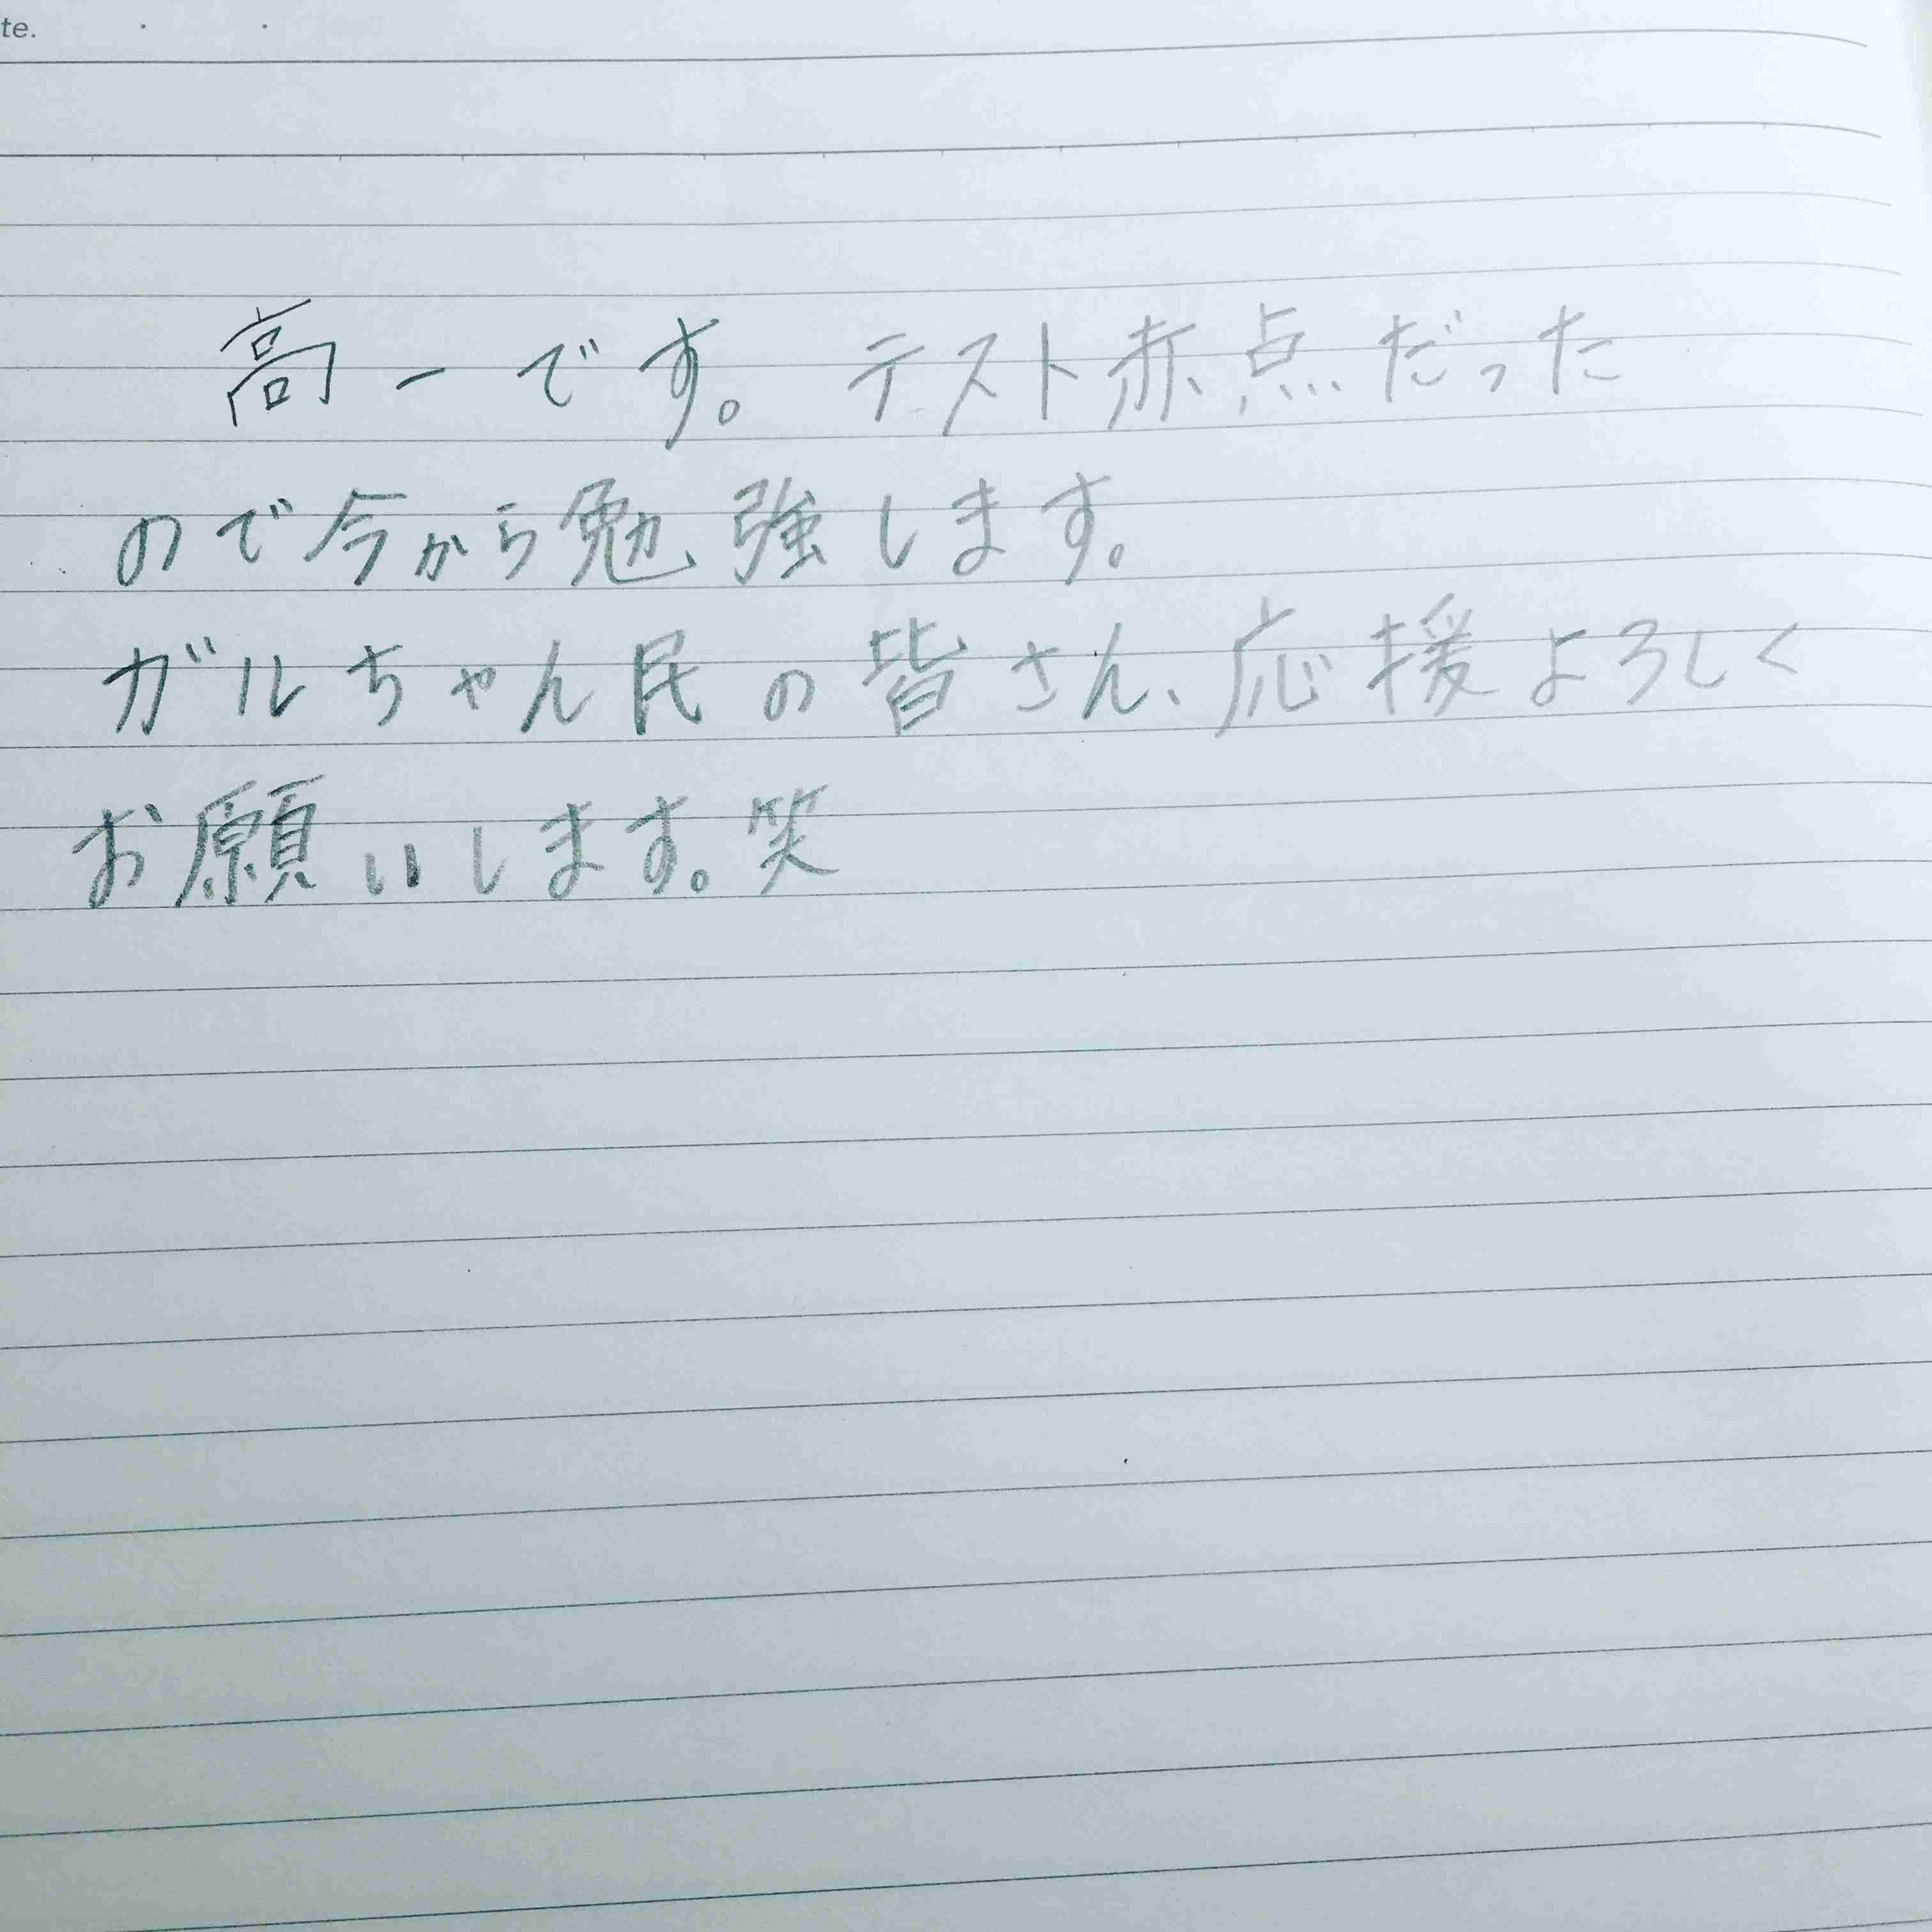 te.
高一です。テスト赤点だった
ので今から勉強します。
ガルちゃん民の皆さん、応援よろしく
お願いします。笑